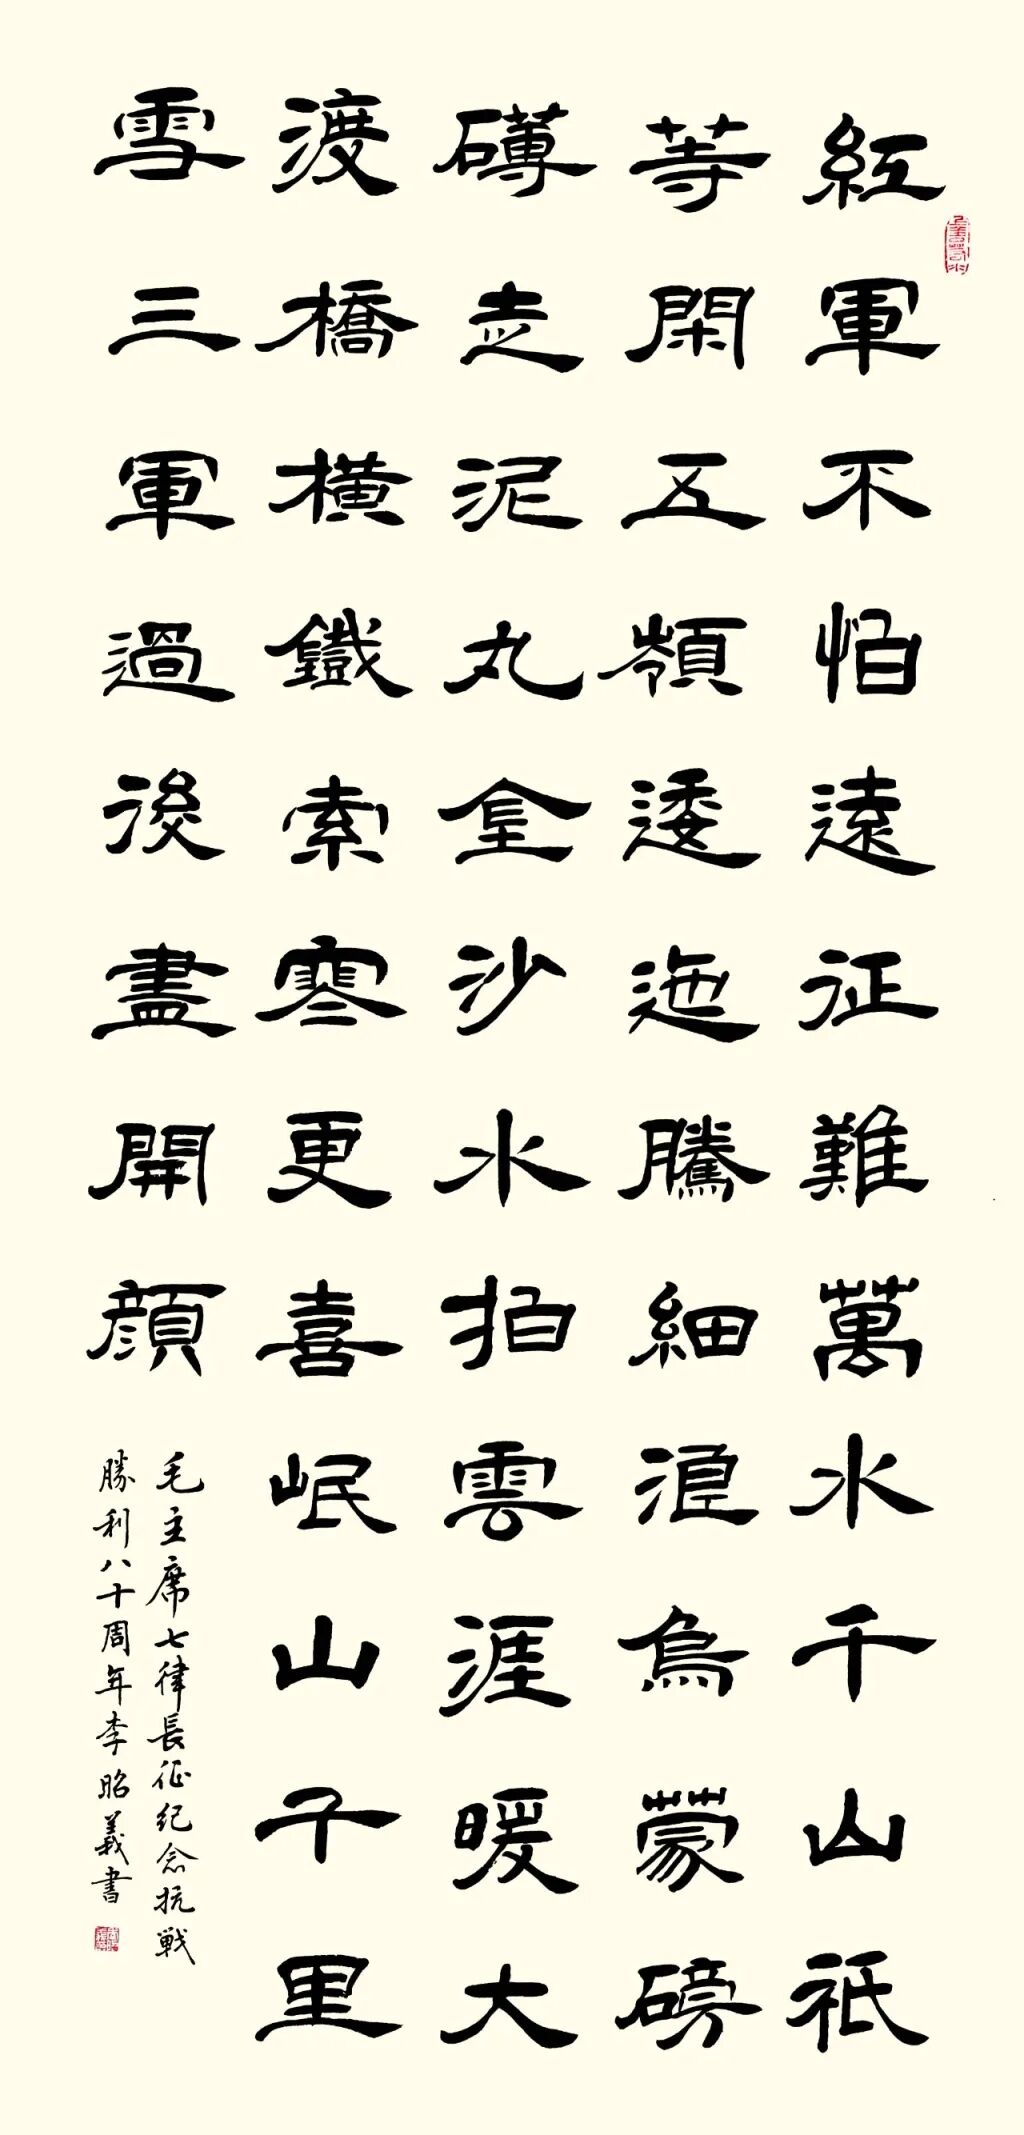 紅軍不怕遠征難萬水千山祇
等閑五嶺逶迤騰細浪烏蒙磅
礴走泥丸金沙水拍雲涯暖大
渡橋橫鐵索寒更喜岷山千里
雪三軍過後盡開顔
毛主席七律長征纪念抗戰
勝利八十周年李昭義書